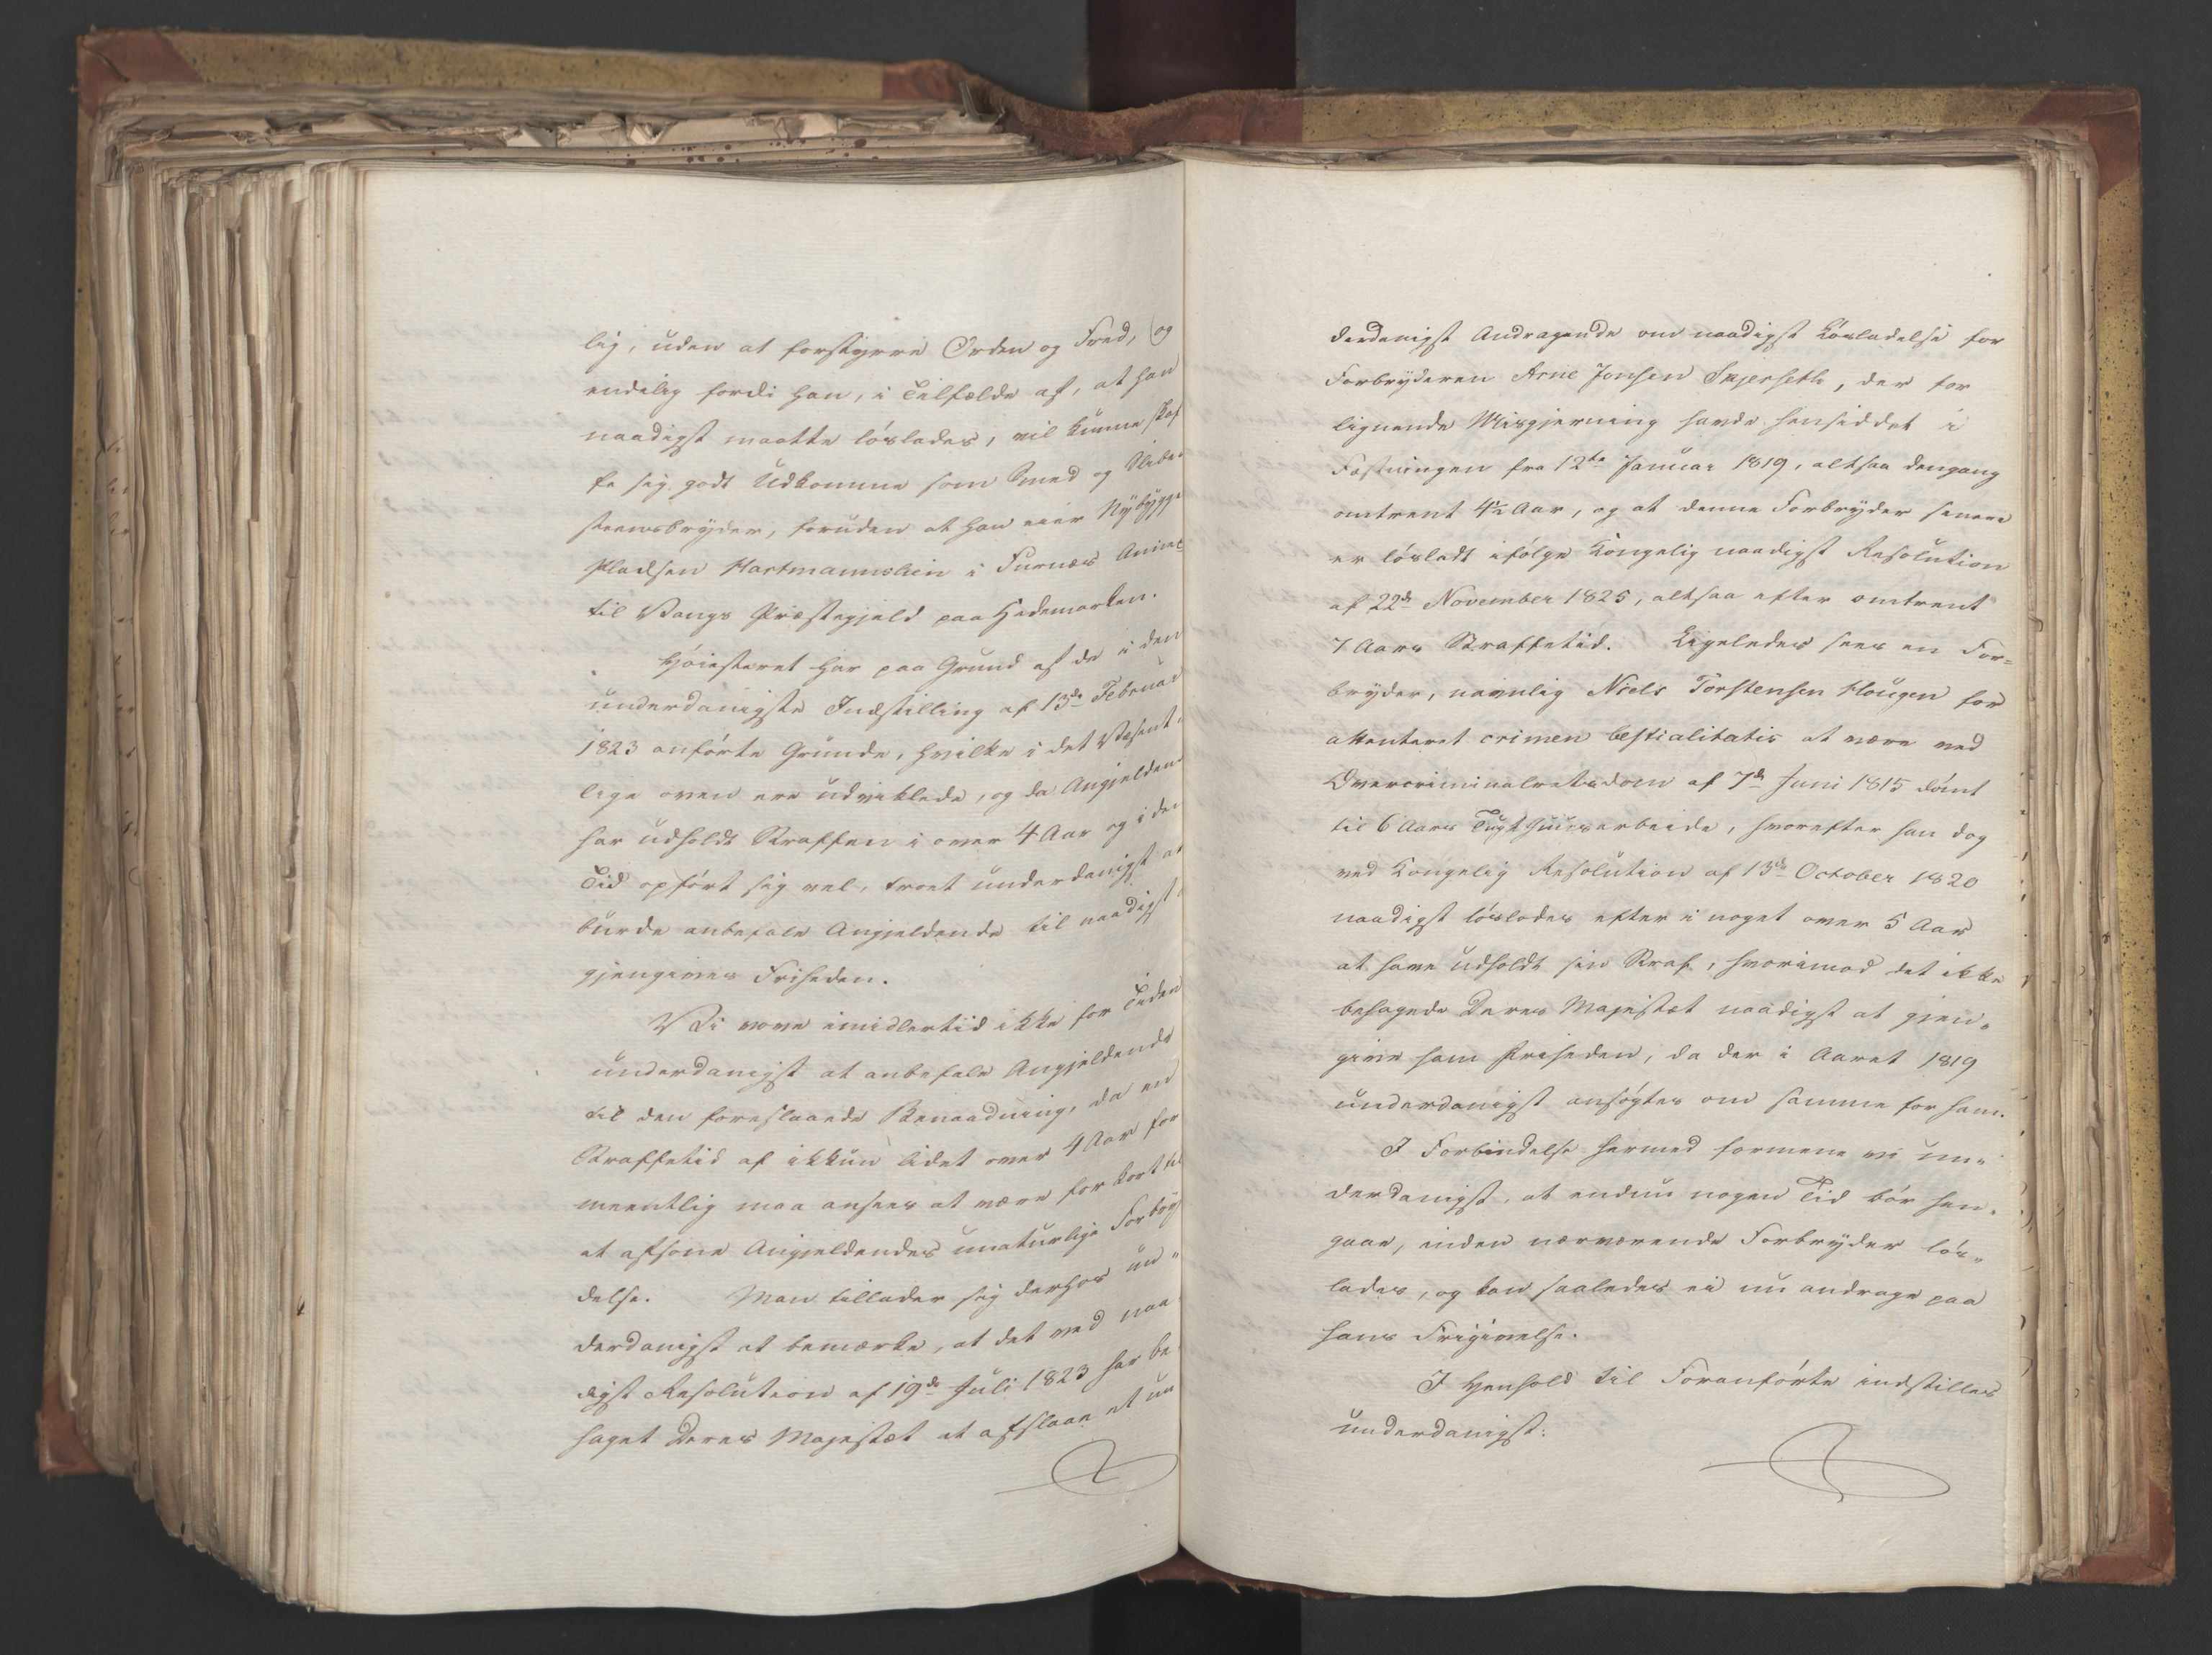 lig, uden at forstyrre Orden og Fred, og
endelig fordi han, i Tilfælde af, at han
naadigst maatte løslades, vil kunne skaf
fe sig godt Udkomme som Smed og Slibe-
steensbryder, foruden at han eier Nybygger
Pladsen Hartmannslien i Furnæs Annex
til Vangs Præstegjeld paa Hedemarken.
Høiesteret har paa Grund af de i den
underdanigste Indstilling af 13de Februar
1823 anførte Grunde, hvilke i det Væsent-
lige oven ere udviklede, og da Angjelden-
har udholdt Straffen i over 4 Aar og i den
Tid opført sig vel, troet underdanigst at
burde anbefale Angjeldende til naadigst
gjengives Friheden.
Vi vove imidlertid ikke for Tiden
underdanigst at anbefale Angjeldende
til den foreslaaede Benaadning, da en
Straffetid af ikkun lidet over 4 Aar for
meentlig maa ansees at være for kort til
at afsone Angjeldendes unaturlige Forbry
delse. Man tillader sig derhos un-
derdanigst at bemærke, at det ved naa
digst Resolution af 19de Juli 1823 har be
haget Deres Majestæt at afslaae et un
derdanigst Andragende om naadigst Løsladelse for
Forbryderen Arne Jonsen Skjerseth, der for
lignende Misgjerning havde hensiddet i
Fæstningen fra 12te Januar 1819, altsaa dengang
omtrent 4½ Aar, og at denne Forbryder senere
er løsladt ifølge Kongelig naadigst Resolution
af 22de November 1825, altsaa efter omtrent
7 Aars Straffetid. Ligeledes sees en For-
bryder, navnlig Niels Torstensen Hougen for
attenteret crimen bestialitatis at være ved
Overcriminalretsdom af 7de Juni 1815 dømt
til 6 Aars Tugthuusarbeide, hvorefter han dog
ved Kongelig Resolution af 13de October 1820
naadigst løslades efter i noget over 5 Aar
at have udholdt sin Straf, hvorimod det ikke
behagede Deres Majestæt naadigst at gjen-
give ham Friheden, da der i Aaret 1819
underdanigst ansøgtes om samme for ham.
I Forbindelse hermed formene vi un-
derdanigst, at endnu nogen Tid bør hen-
gaae, inden nærværende Forbryder løs-
lades, og kan saaledes ei nu andrage paa
hans Frigivelse.
I Henhold til Foranførte indstilles
underdanigst: